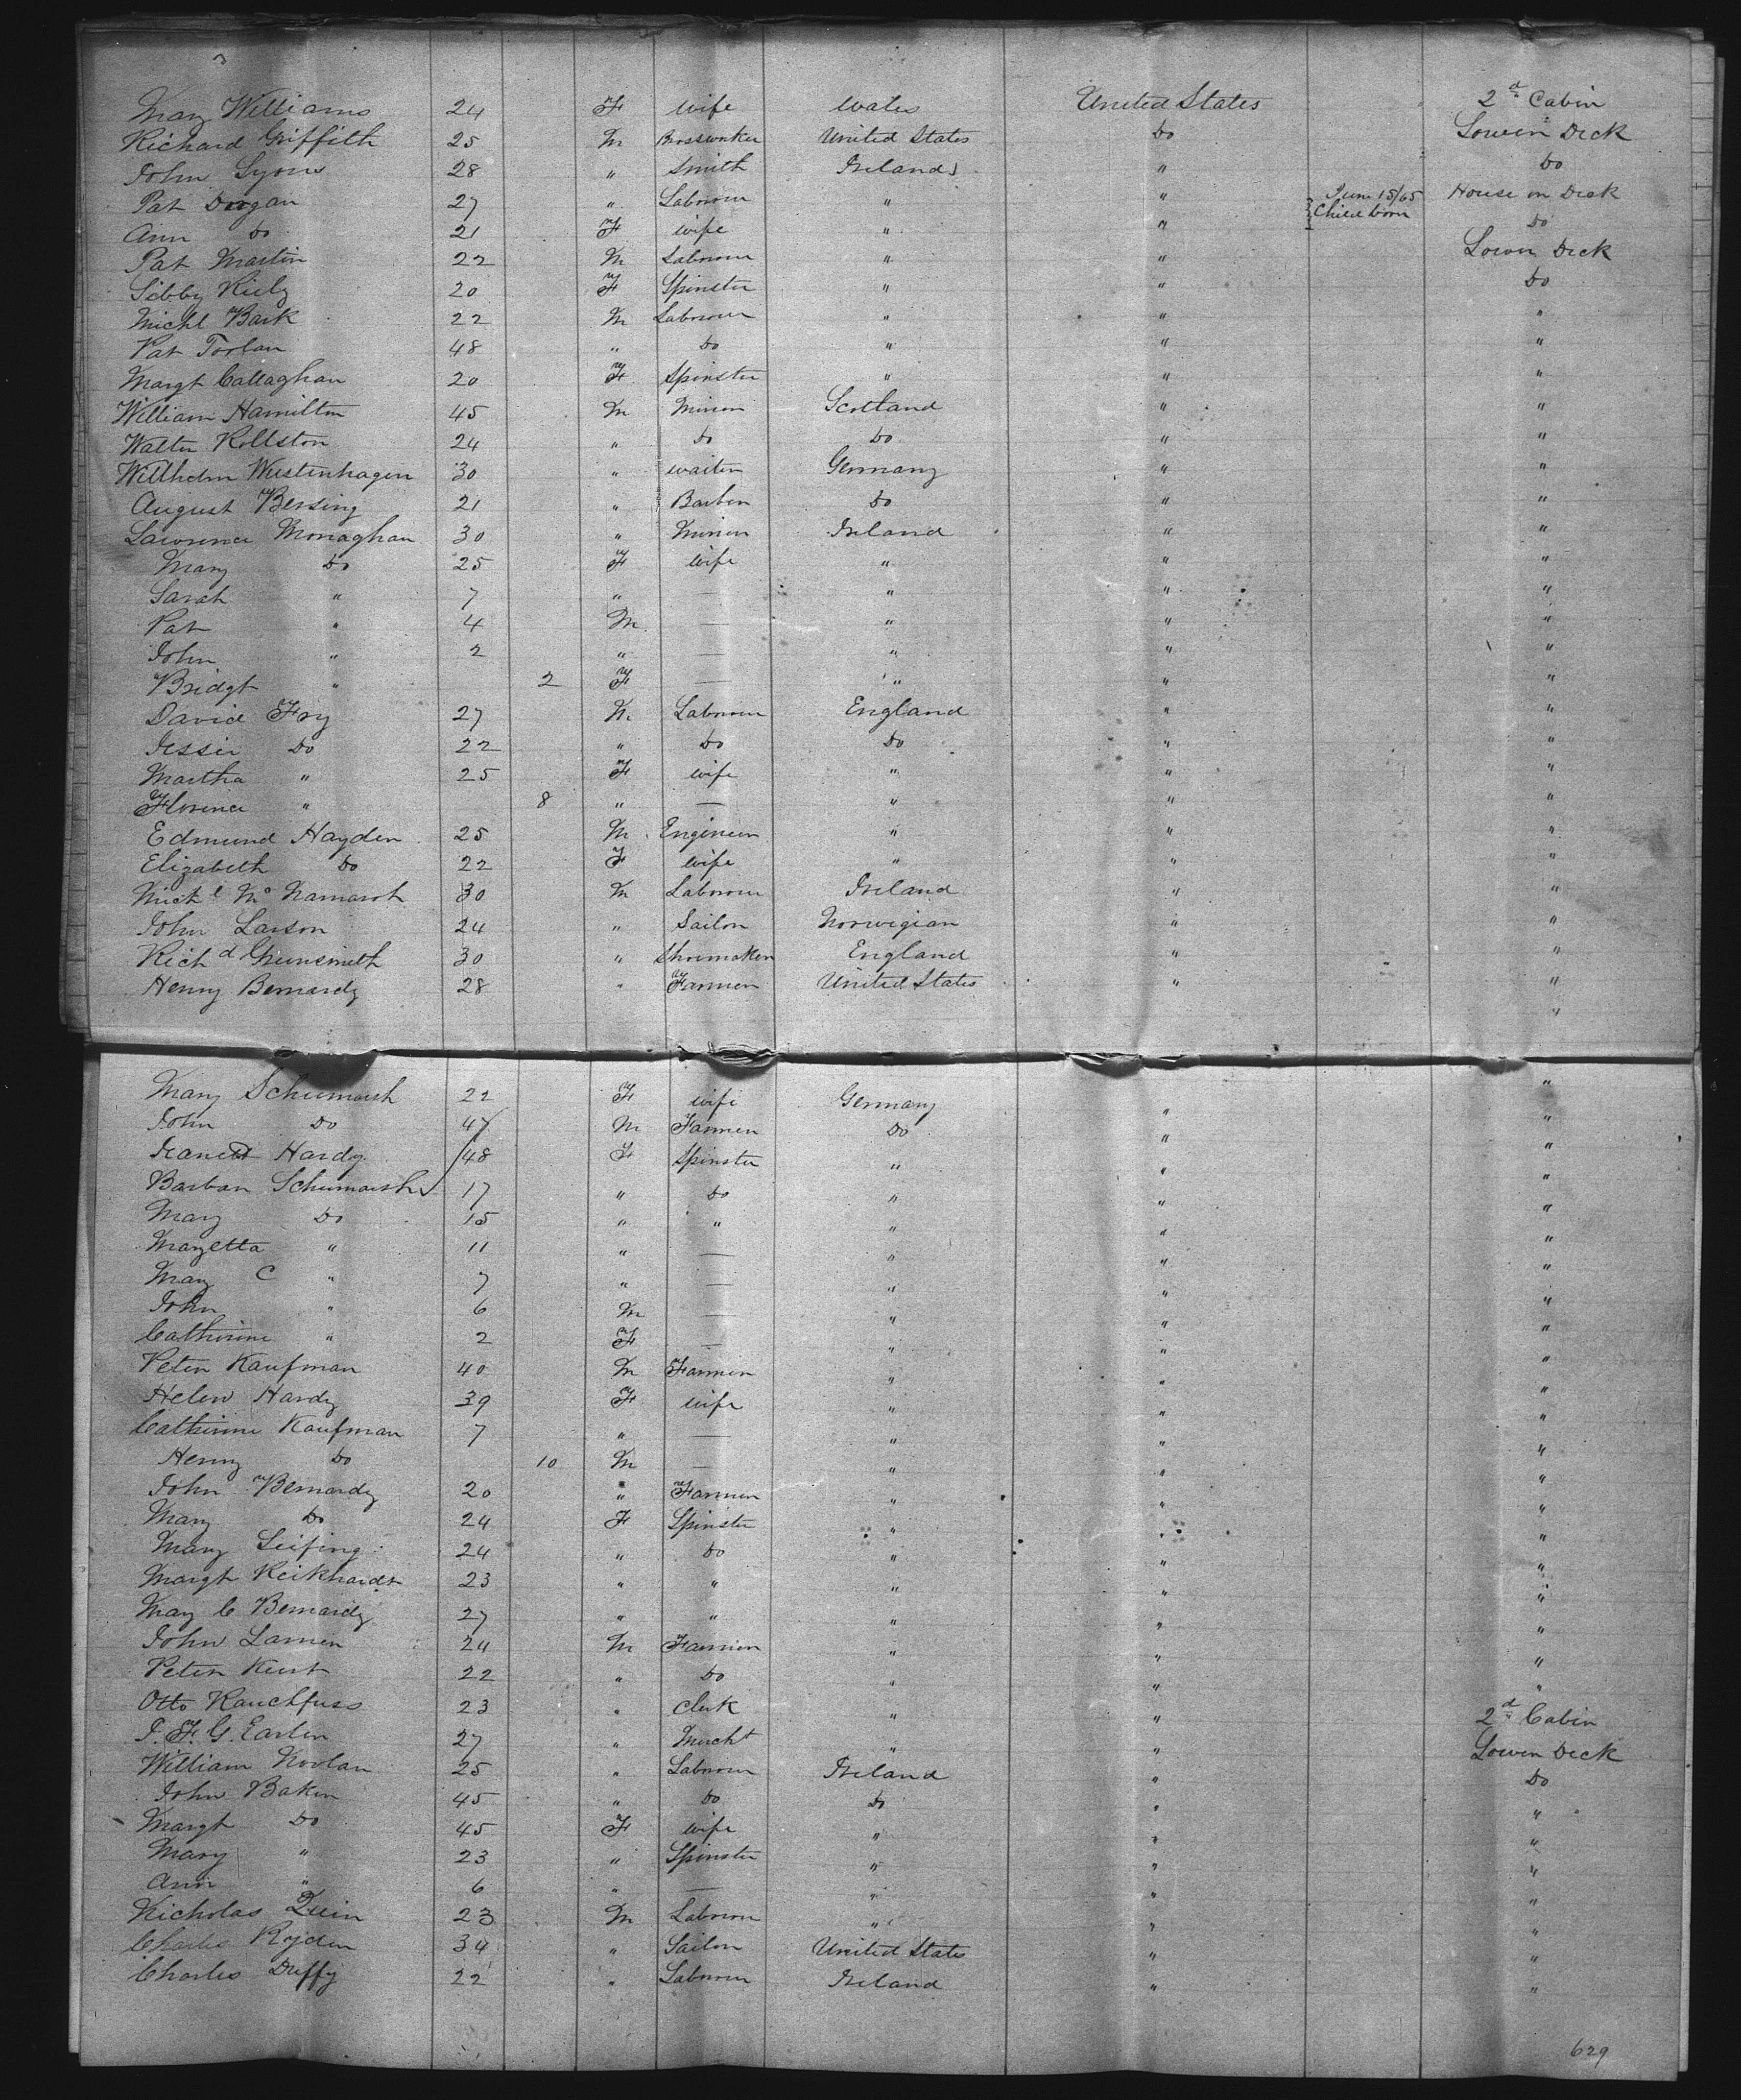 Mary Williams 24 F wife Wales United States 2d Cabin
Richard Griffith 25 M Brassworker United States Do Lower Deck
John Lyons 28 " Smith Ireland " Do
Pat Dugan 27 " Labourer " " June 15/65 Child born House on Deck
Ann Do 21 F wife " " Do
Pat Martin 22 M Labourer " " Lower Deck
Sibby Kiely 20 F Spinster " " Do
Michl Bark 22 M Labourer " " "
Pat Toolan 48 " Do " " "
Margt Callaghan 20 F Spinster " " "
William Hamilton 45 M Miner Scotland " "
Walter Rollston 24 " Do Do " "
Willhelm Westenhagen 30 " waiter Germany " "
August Bersing 21 " Barber Do " "
Lawrence Monaghan 30 " Miner Ireland " "
Mary Do 25 F wife " " "
Sarah " 7 " — " " "
Pat " 4 M — " " "
John " 2 " — " " "
Bridgt " 2 F — " " "
David Fry 27 M Labourer England " "
Jessie Do 22 " Do Do " "
Martha " 25 F wife " " "
Florence " 8 " — " " "
Edmund Hayden 25 M Engineer " " "
Elizabeth Do 22 F wife " " "
Michl Mc 30 M Labourer Ireland " "
John Larson 24 " Sailor Norwegian " "
Richd Greensmith 30 " Shoemaker England " "
Henry Bernardy 28 " Farmer United States " "
"
Mary Schumarsh 22 F wife Germany " "
John Do 47 M Farmer Do " "
Hardy 48 F Spinster " " "
Barbara Schumarsh 17 " Do " " "
Mary Do 15 " " " " "
Maryetta " 11 " — " " "
Mary C " 7 " — " " "
John " 6 M — " " "
Catherine " 2 F — " " "
Peter Kaufman 40 M Farmer " " "
Helen Hardy 39 F wife " " "
Catherine Kaufman 7 " — " " "
Henry Do 10 M — " " "
John Bernardy 20 " Farmer " " "
Mary Do 24 F Spinster " " "
Mary Leifing 24 " Do " " "
Margt Reikhardt 23 " " " " "
Mary C Bernardy 27 " " " " "
John Lamen 24 M Farmer " " "
Peter Kurt 22 " Do " " "
Otto Rauchfuss 23 " Clerk " " 2d Cabin
F. G. Earlen 27 " Mercht " " Lower Deck
William Noolan 25 " Labourer Ireland " Do
John Baker 45 " Do Do " "
Margt Do 45 F wife " " "
Mary " 23 " Spinster " " "
Ann " 6 " — " " "
Nicholas Quin 23 M Labourer " " "
Charles Ryder 34 " Sailor United States " "
Charles Duffy 22 " Labourer Ireland " "
629